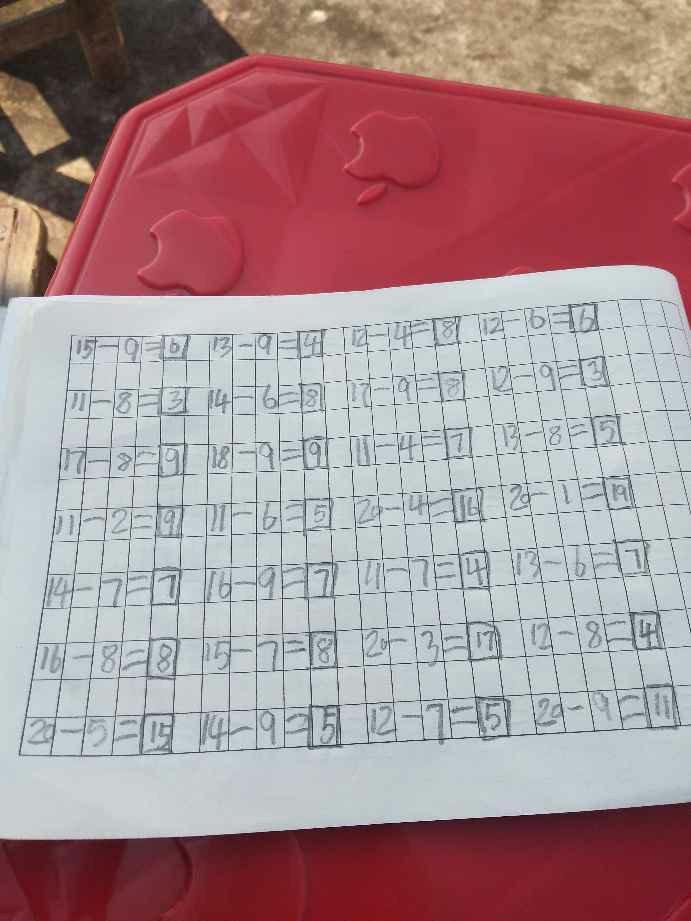 15-9=6 13-9=4 12-4=8 12-6=6
11-8=3 14-6=8 17-9=8 12-9=3
17-8=9 18-9=9 11-4=7 13-8=5
11-2=9 11-6=5 20-4=16 20-1=19
14-7=7 16-9=7 11-7=4 13-6=7
16-8=8 15-7=8 20-3=17 12-8=4
20-5=15 14-9=5 12-7=5 20-9=11